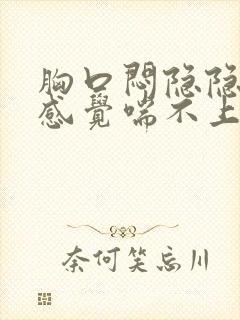 胸口悶隐隐
感覺喘不上
奈何笑忘川